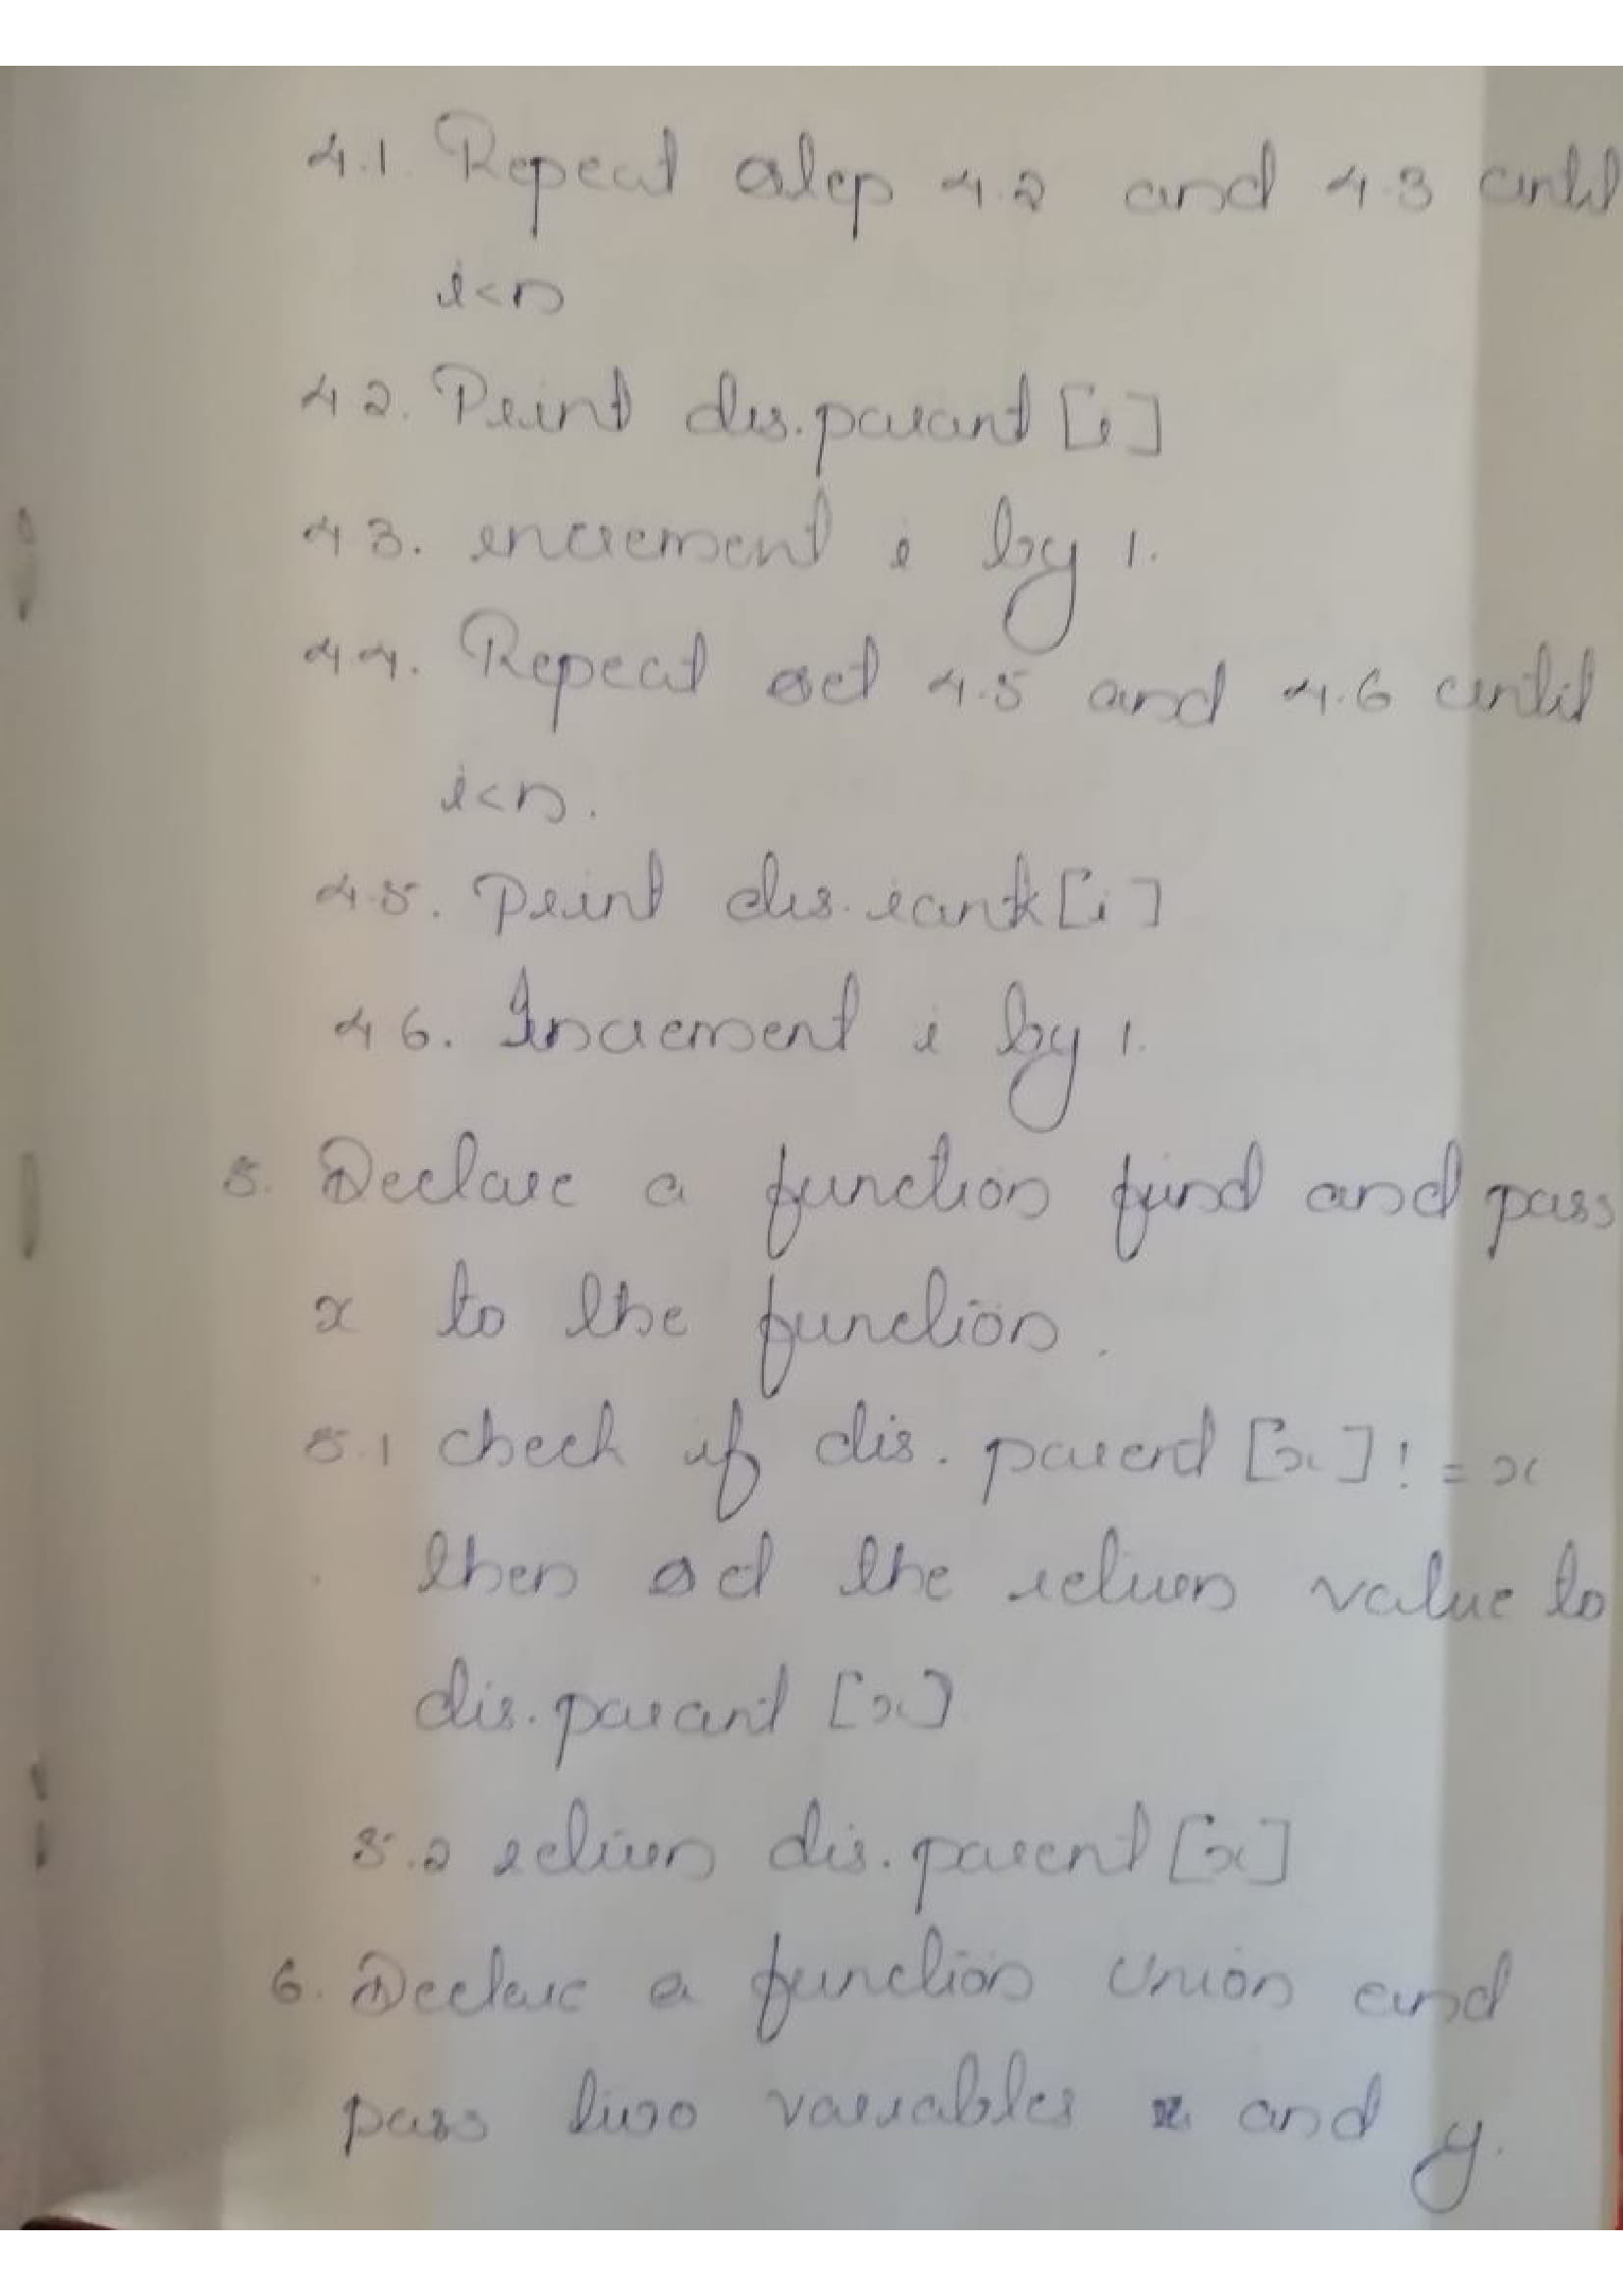 4.1. Repeat step 4.2 and 4.3 until
i<n
4.2. Print dis.parant [i]
4.3. increment i by 1.
4.4. Repeat set 4.5 and 4.6 until
i<n.
4.5. Print dis.rank[i]
4.6. Increment i by 1.
5. Declare a function find and pass
x to the function.
5.1 check if dis. parent [x]! = x
then set the return value to
dis.parant [x]
5.2 return dis.parent [x]
6. Declare a function Union and
pass two variables x and y.